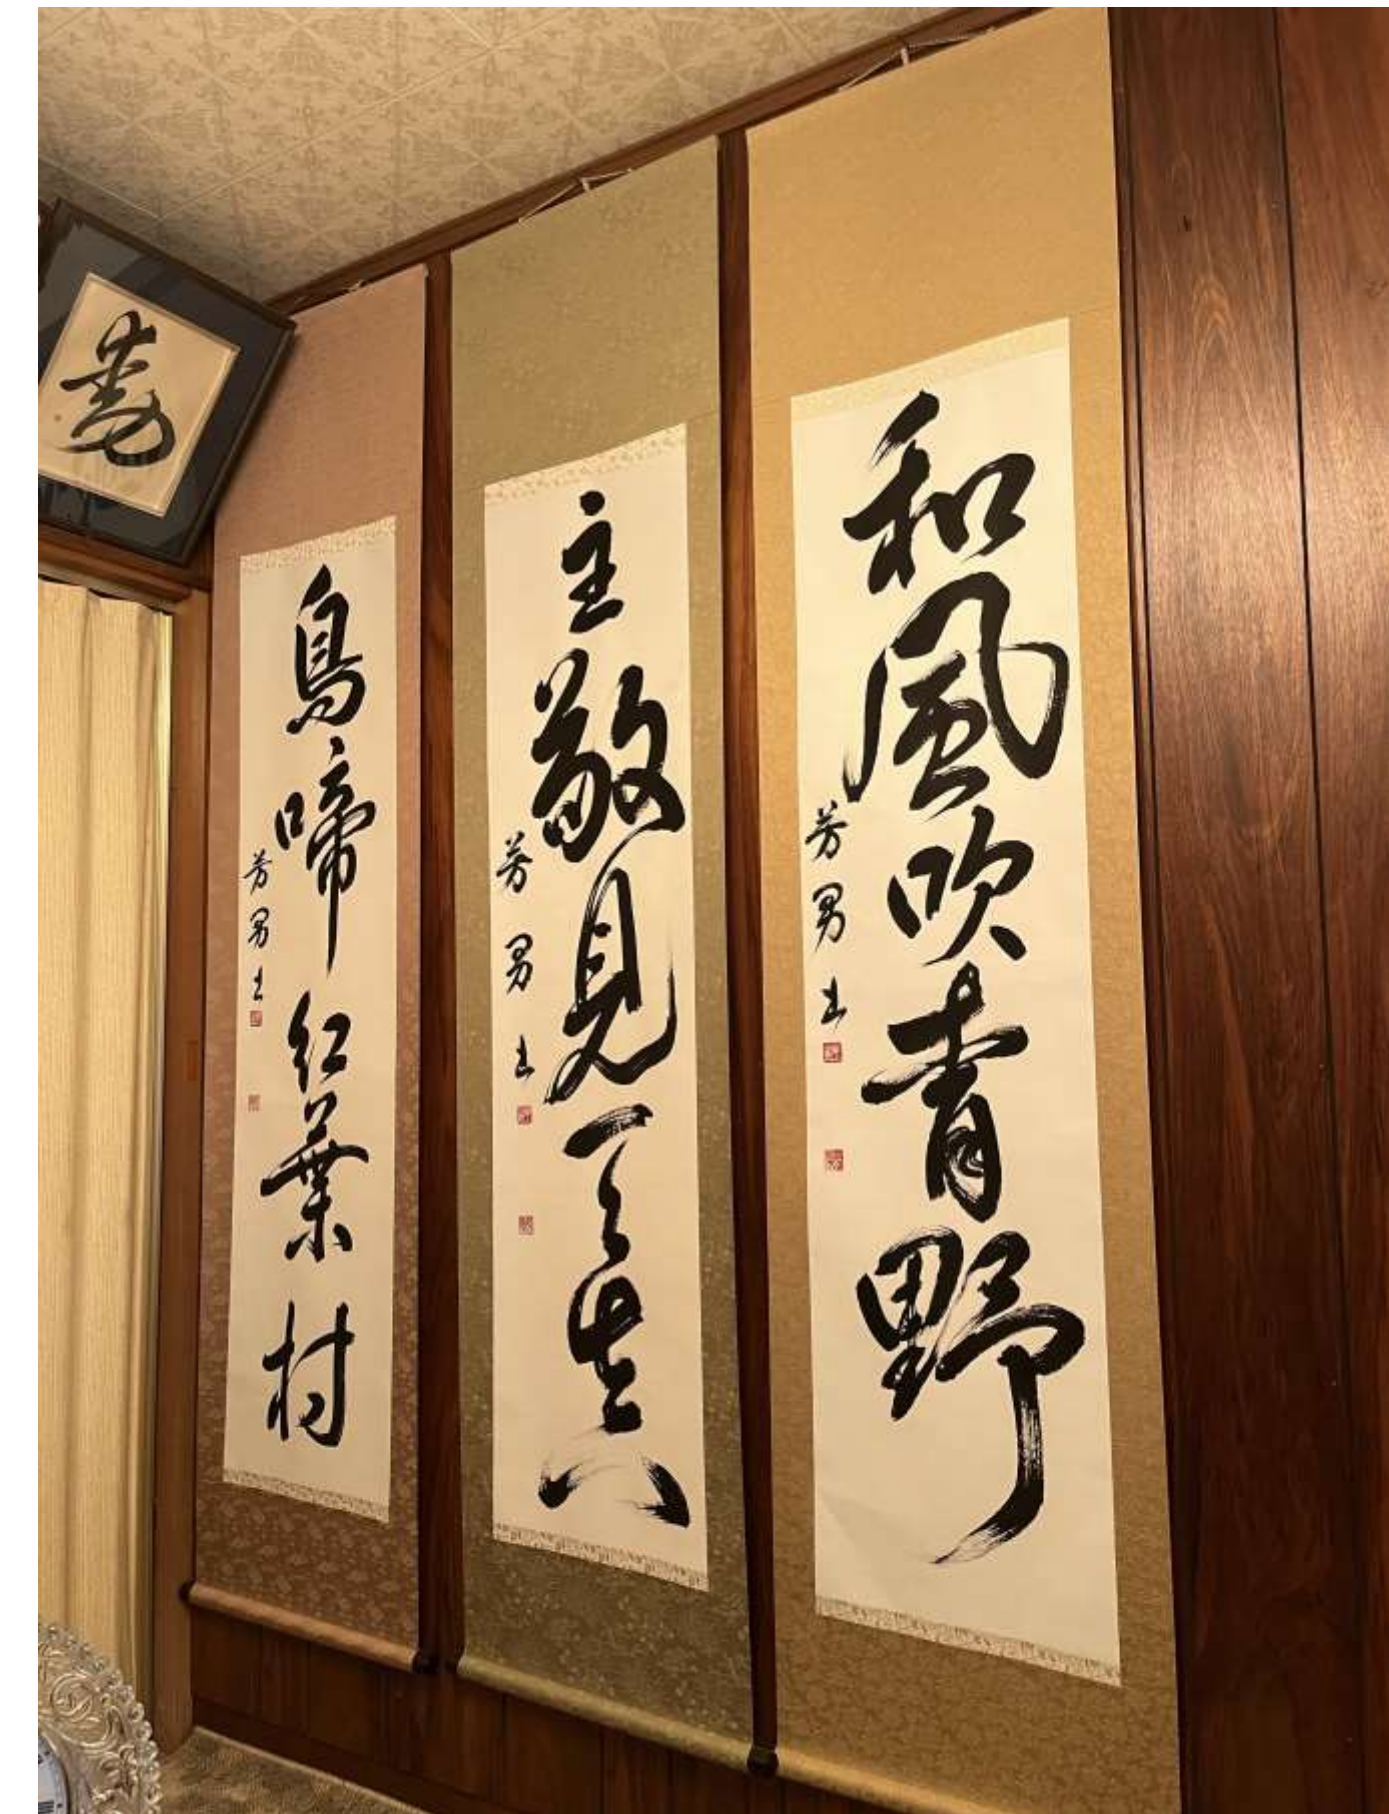 和風吹青野
芳男書
主敬見天真
芳男書
鳥啼紅葉村
芳男書
寿